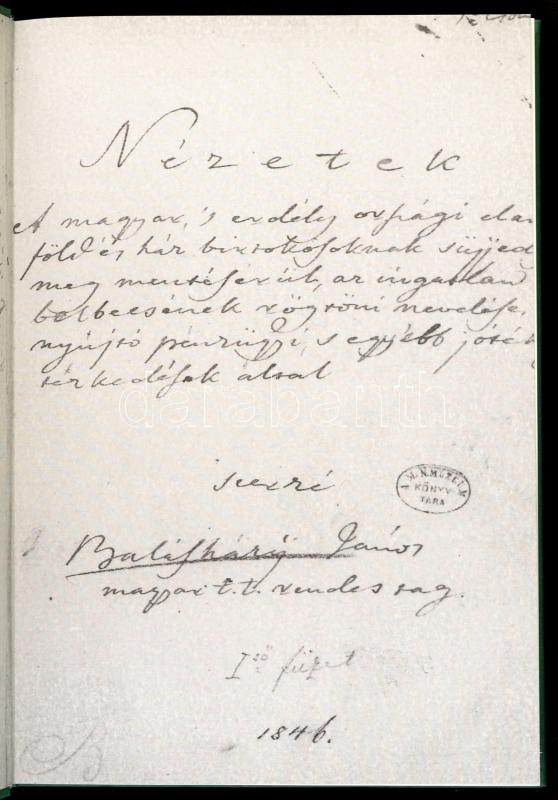 Nézetek
A magyar, 's erdély országi
föld és ház birtokosoknak
meg mentésérül, az ingatlan
belbecsének rögtöni nevelése,
nyújtó pénzügyi, 's egyébb
által
szerzé
Balásházy János
magyar t.t. rendes tag.
I ső füzet
1846.
A M. N. MUZEUM
KÖNYV
TÁRA
darabanth